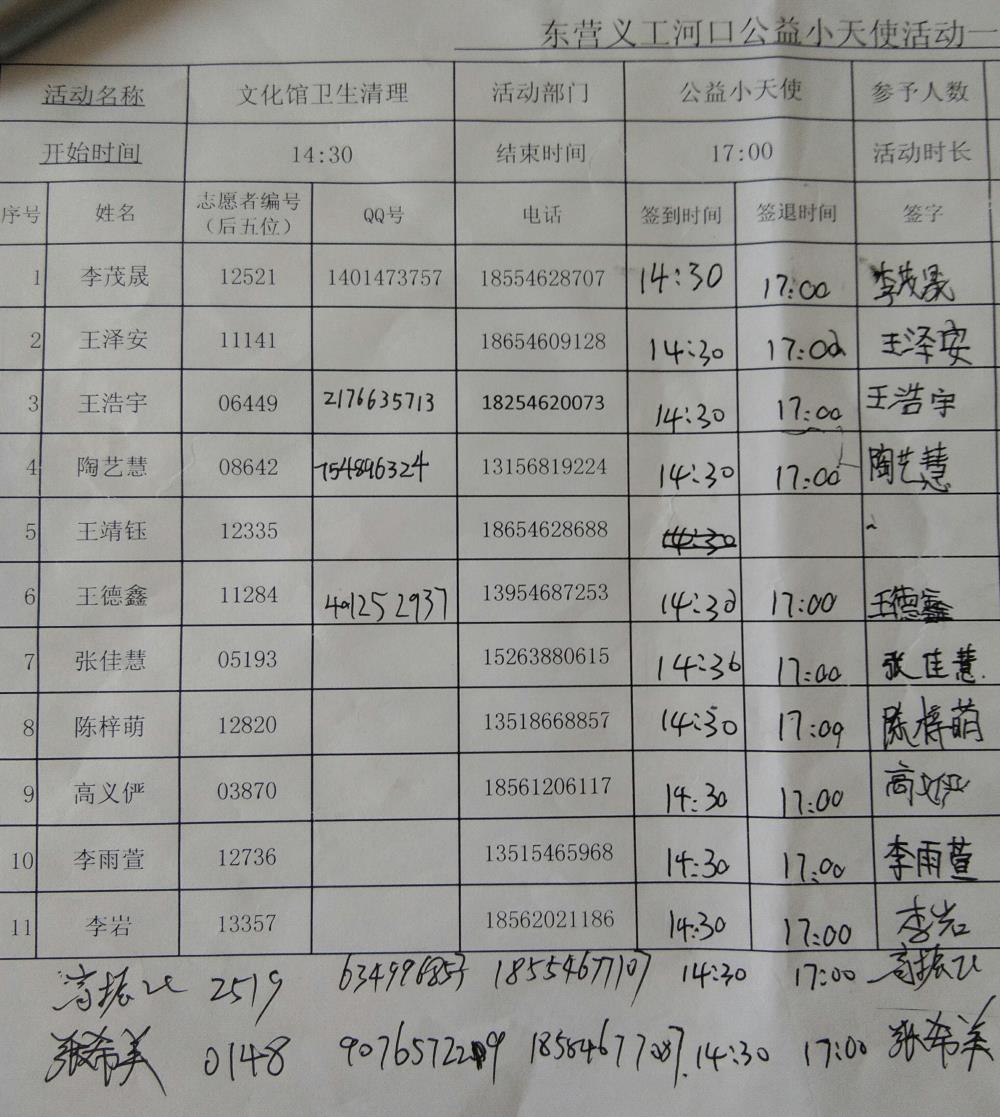 东营义工河口公益小天使活动一
活动名称 文化馆卫生清理 活动部门 公益小天使 参予人数
开始时间 14:30 结束时间 17:00 活动时长
序号 姓名 志愿者编号（后五位） QQ号 电话 签到时间 签退时间 签字
1 李茂晟 12521 1401473757 18554628707 14:30 17:00 李茂晟
2 王泽安 11141 18654609128 14:30 17:00 王泽安
3 王浩宇 06449 2176635713 18254620073 14:30 17:00 王浩宇
4 陶艺慧 08642 754896324 13156819224 14:30 17:00 陶艺慧
5 王靖钰 12335 18654628688 14:30
6 王德鑫 11284 491252937 13954687253 14:30 17:00 王德鑫
7 张佳慧 05193 15263880615 14:30 17:00 张佳慧
8 陈梓萌 12820 13518668857 14:30 17:00 陈梓萌
9 高义俨 03870 18561206117 14:30 17:00 高义俨
10 李雨萱 12736 13515465968 14:30 17:00 李雨萱
11 李岩 13357 18562021186 14:30 17:00 李岩
高振 2519 634996853 18554677107 14:30 17:00 高振
张希美 0148 14:30 17:00 张希美